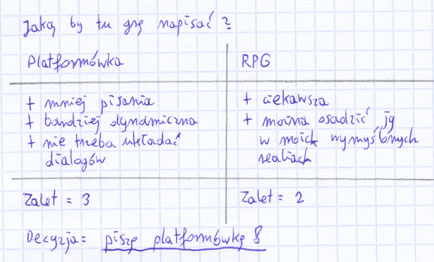 Jaką by tu grę napisać?
Platformówka
RPG
+ mniej pisania
+ bardziej dynamiczna
+ nie trzeba układać
dialogów
+ ciekawsza
+ można osadzić ją
w moich wymyślonych
realiach
Zalet = 3
Zalet = 2
Decyzja = piszę platformówkę!